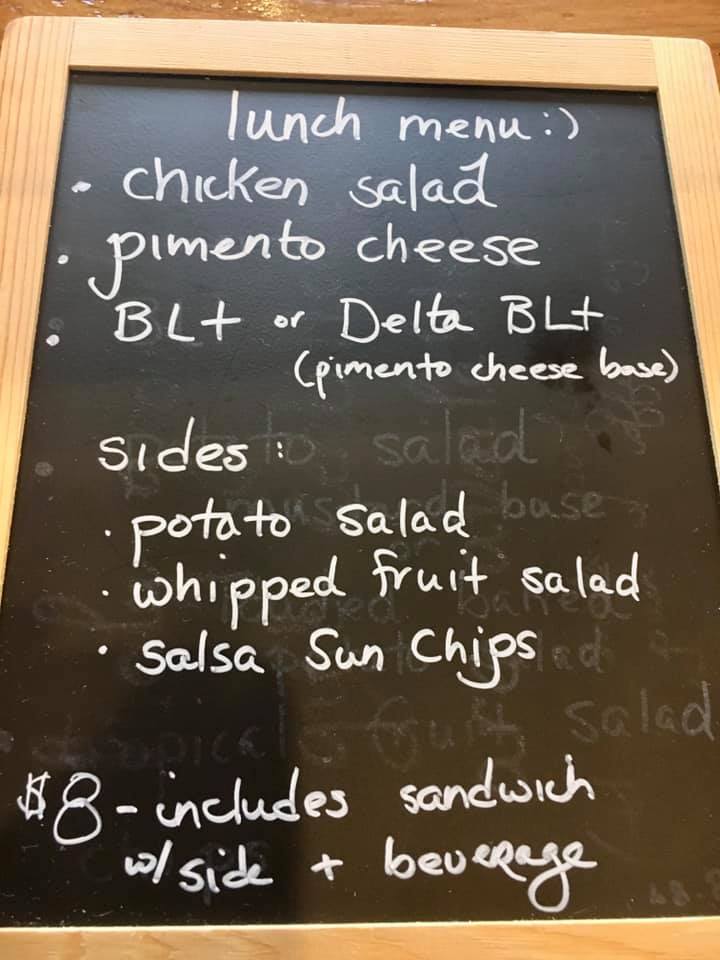 lunch menu:)
• chicken salad
• pimento cheese
• BLt or Delta BLt
(pimento cheese base)
sides:
• potato salad
• whipped fruit salad
• salsa Sun Chips
$8 - includes sandwich
w/ side + beverage